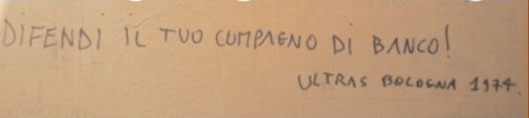 DIFENDI IL TUO COMPAGNO DI BANCO!
ULTRAS BOLOGNA 1974.